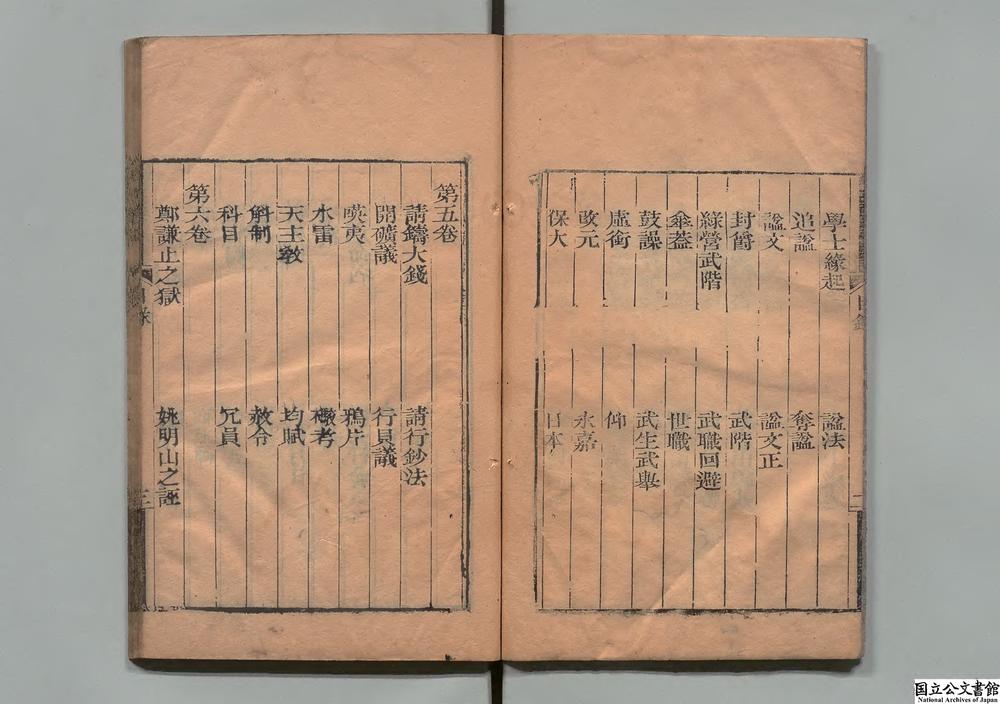 學士緣起 諡法
追諡 奪諡
諡文 諡文正
封爵 武階
綠營武階 武職回避
傘蓋 世職
鼓譟 武生武舉
虛銜 仰
改元 永嘉
保大 日本
第五卷
請鑄大錢 請行鈔法
開礦議 行貝議
暎夷 鴉片
水雷 檄考
天主教 均賦
斛制 赦令
科目 冗員
第六卷
鄭謙止之獄 姚明山之誣
目錄
三
国立公文書館
National Archives of Japan